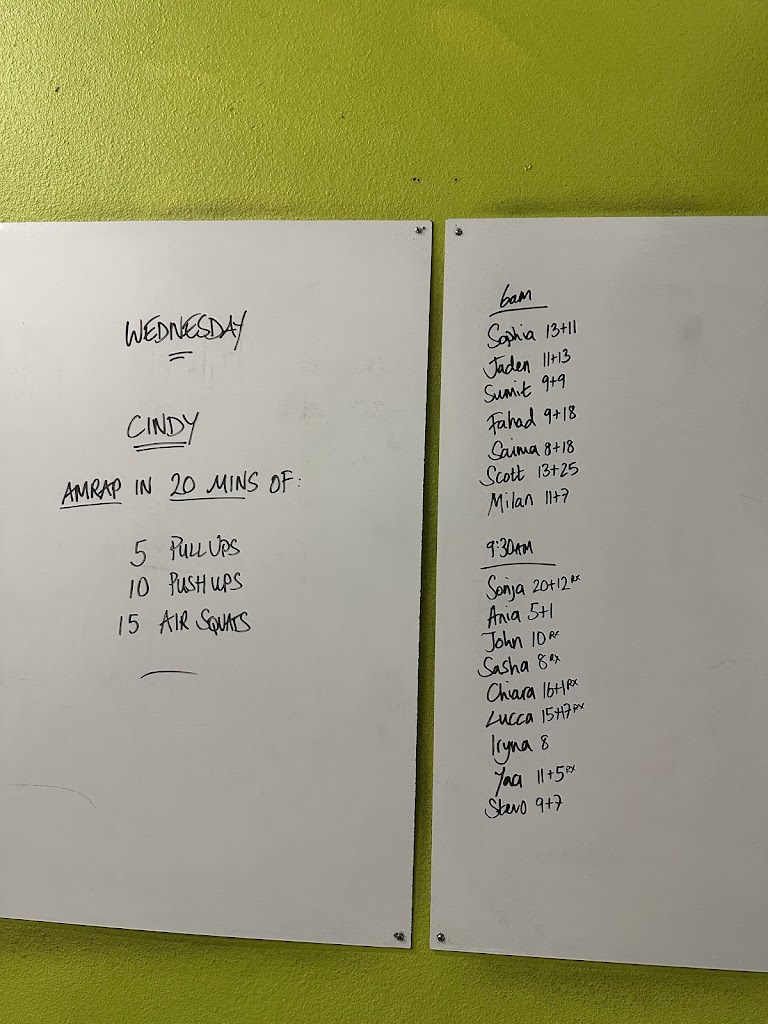 WEDNESDAY
CINDY
AMRAP IN 20 MINS OF:
5 PULL UPS
10 PUSH UPS
15 AIR SQUATS
6am
Sophia 13+11
Jaden 11+13
Sumit 9+9
Fahad 9+18
Saima 8+18
Scott 13+25
Milan 11+7
9:30AM
Sonja 20+12 RX
Ania 5+1
John 10 RX
Sasha 8 RX
Chiara 16+1 RX
Lucca 15+17 RX
Iryna 8
Yaa 11+5 RX
Stevo 9+7